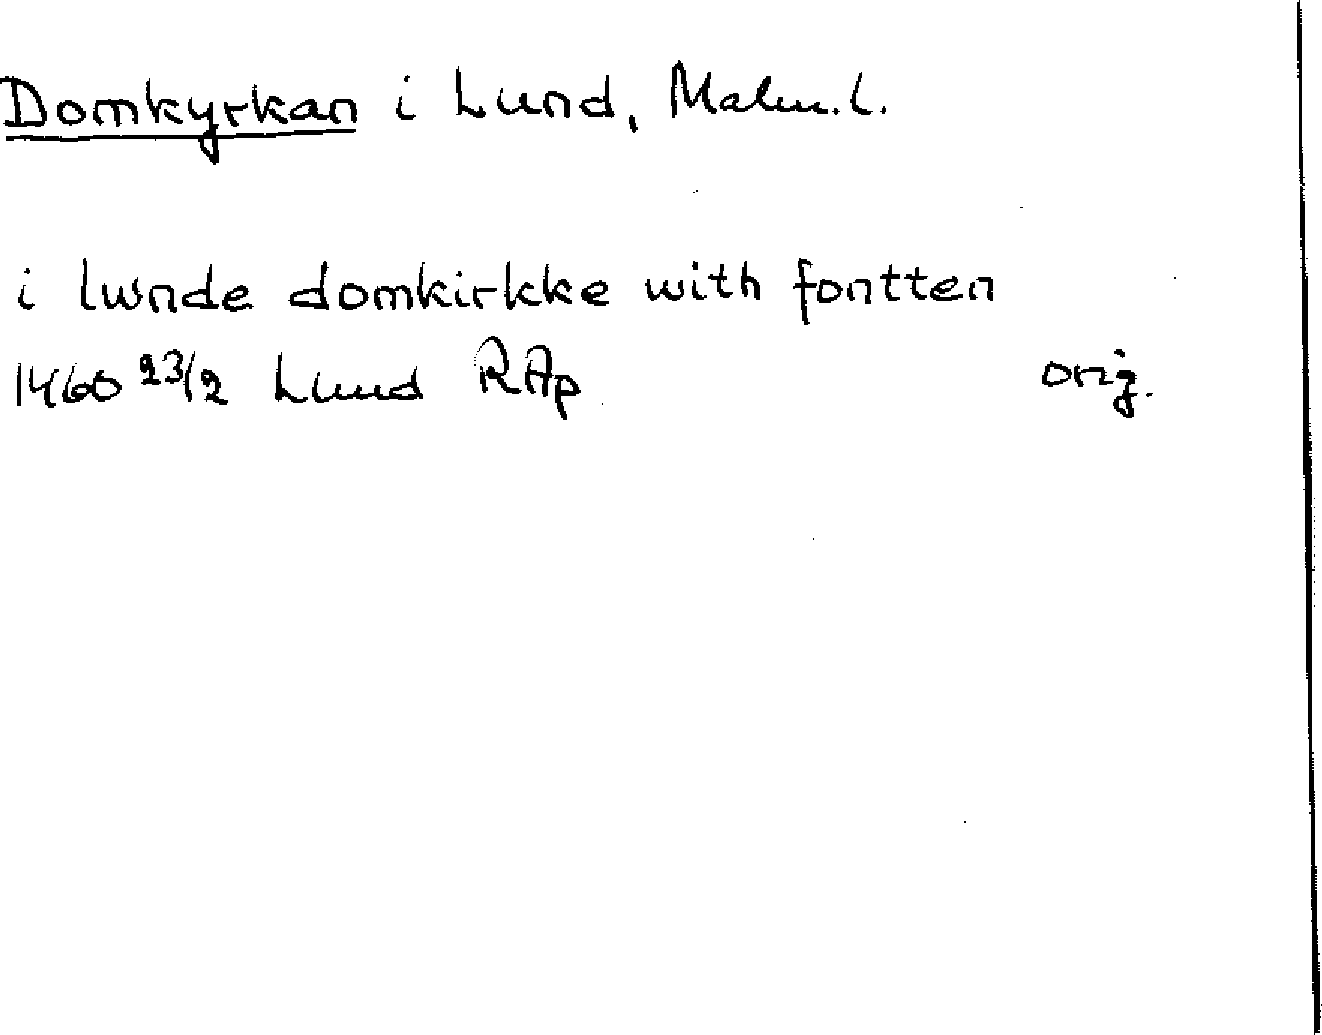 Domkyrkan i Lund, Malm.l.
i lwnde domkirkke with fontten
1460 23/2 Lund RAp orig.